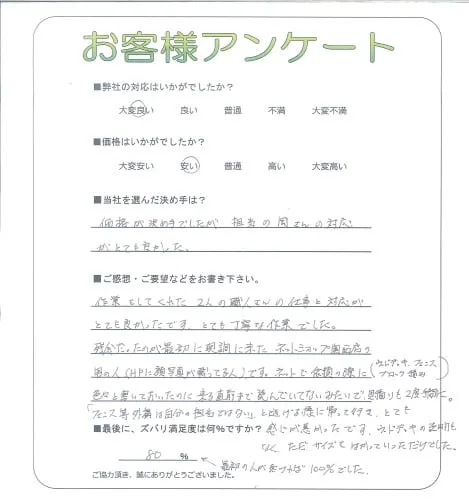 お客様アンケート
■弊社の対応はいかがでしたか？
大変良い 良い 普通 不満 大変不満
■価格はいかがでしたか？
大変安い 安い 普通 高い 大変高い
■当社を選んだ決め手は？
価格が決め手でしたが 担当の岡さんの対応
がとても良かった。
■ご感想・ご要望などをお書き下さい。
作業をしてくれた 2人の職人さんの仕事と対応が
とても良かったです。とても丁寧な作業でした。
残念だったのが最初に現調に来た ネットショップ
の人(HPに顔写真が載ってる人)です。ネットで依頼の際に(ウッドデッキ、フェンス
ブロック
色々と書いておいたのに 来る直前まで読んでいてないみたいで、見積りも2度
「フェンス等外構は自分の担当ではない」と 様に帰って行き、とても
■最後に、ズバリ満足度は何％ですか？ 感じが悪かったです。ウッドデッキの 
なく、ただサイズをはかっていっただけでした。
80 %
最初の人が 100%でした。
ご協力頂き、誠にありがとうございました。